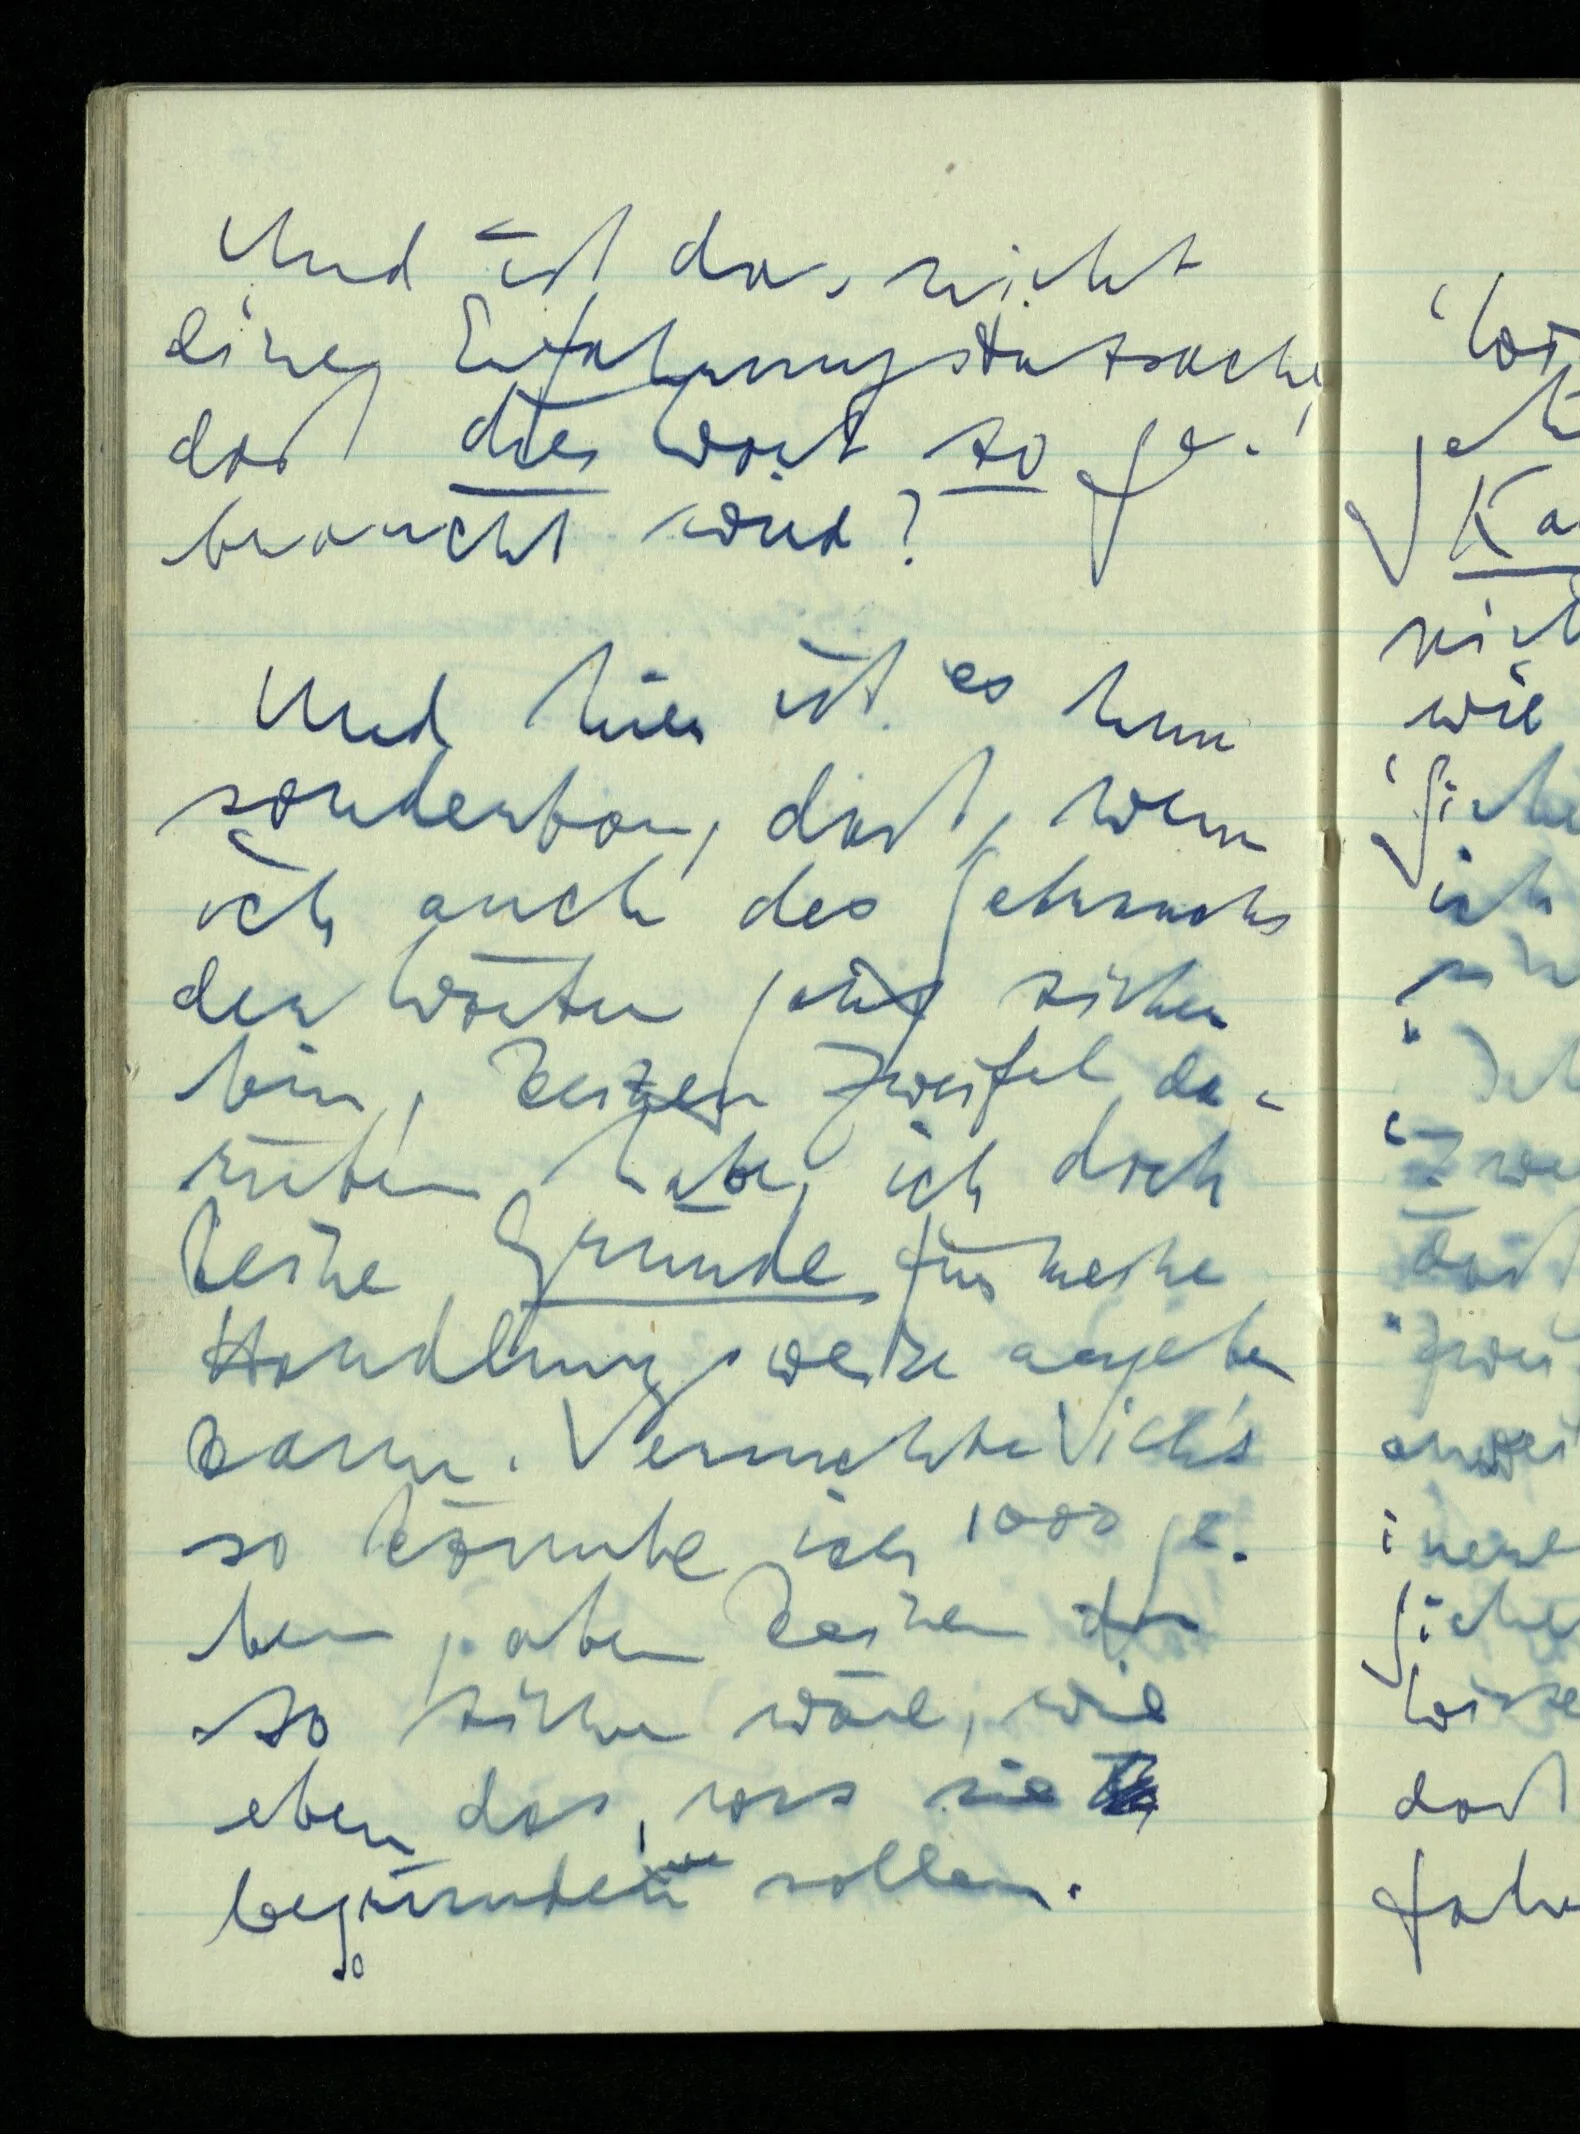 Und ist das nicht
eine Erfahrungstatsache,
daß dies Wort so ge-
braucht wird?
Und hier ist es nun
sonderbar, daß, wenn
ich auch des Gebrauchs
der Wörter ganz sicher
bin, keinen Zweifel da-
rüber habe, ich doch
keine Gründe für meine
Handlungsweise angeben
kann. Versuchte ich's
so könnte ich 1000 ge-
ben, aber keinen der
so sicher wäre, wie
eben das, was sie
begründen sollen.
jeh
Ka
nich
wie
'siche
ich
"Ich
daß
siche
daß